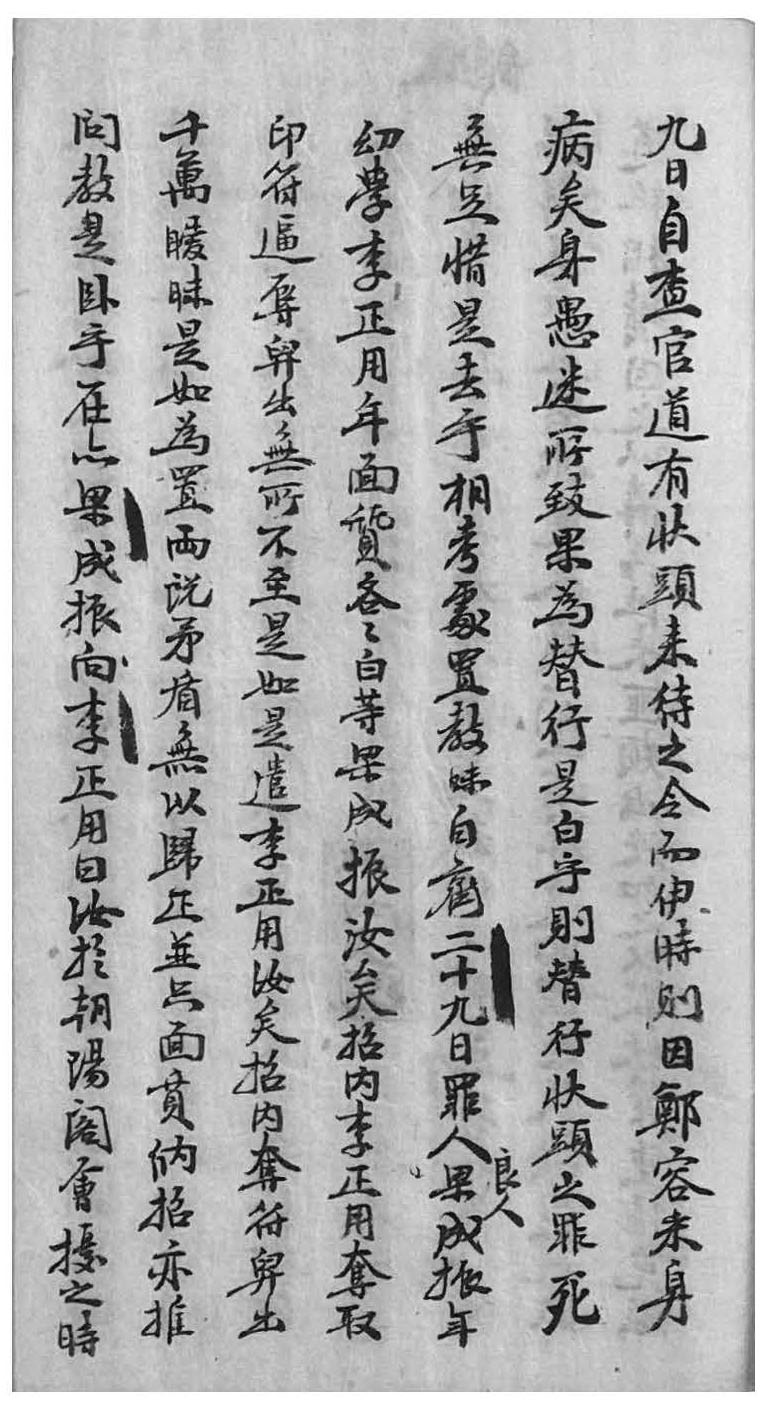 九日自查官道有狀頭來待之令而伊時則因鄭容來身
病矣身愚迷所致果爲替行是白乎則替行狀頭之罪死
無足惜是去乎相考處置敎味白齊二十九日罪人良人果成振年
幼學李正用年面質各各白等果成振汝矣招內李正用奪取
印符逼辱舁出無所不至是如是遣李正用汝矣招內奪符舁出
千萬曖昧是如爲置兩說矛盾無以歸正並只面質納招亦推
問敎是臥乎在亦果成振向李正用曰汝於朝陽閣會擾之時